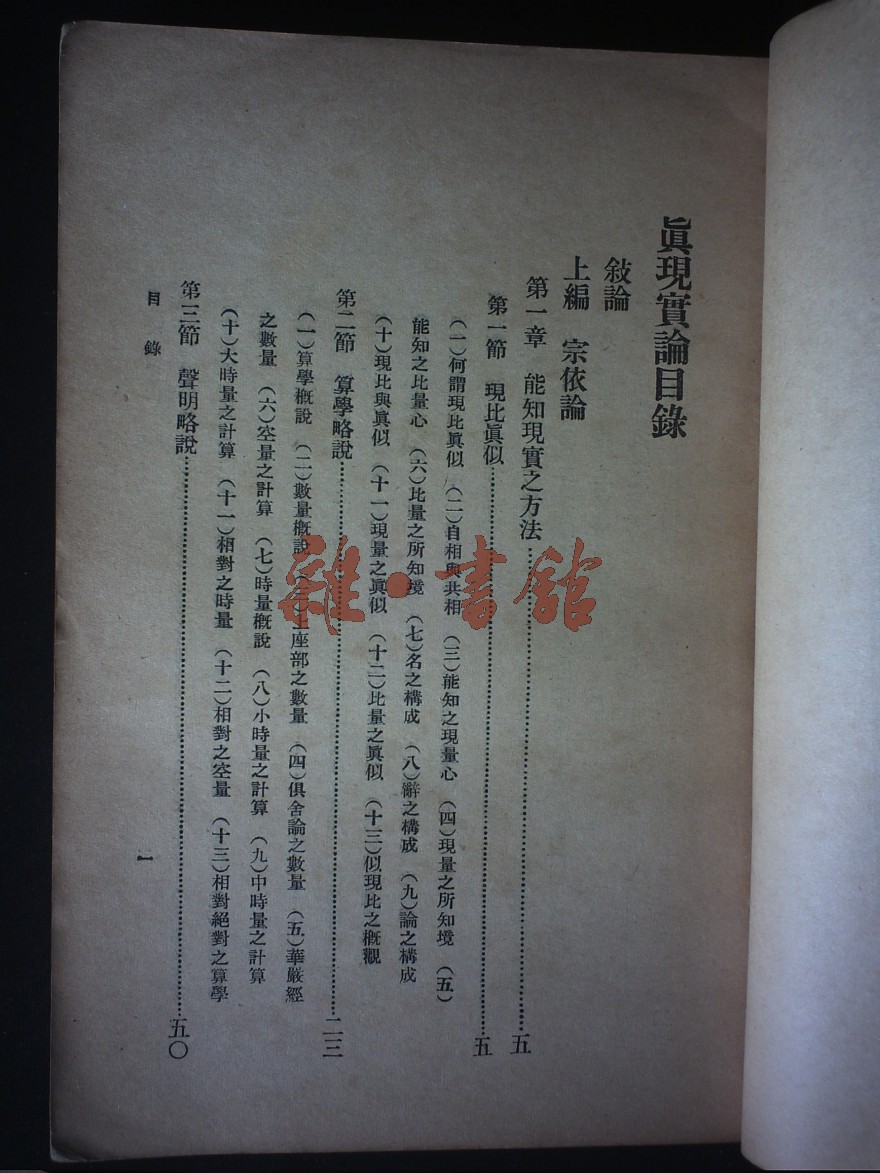 眞現實論目錄
敍論
上編　宗依論
第一章　能知現實之方法……………五
第一節　現比眞似……………五
（一）何謂現比眞似　（二）自相與共相　（三）能知之現量心　（四）現量之所知境　（五）
能知之比量心　（六）比量之所知境　（七）名之構成　（八）辭之構成　（九）論之構成
（十）現比與眞似　（十一）現量之眞似　（十二）比量之眞似　（十三）似現比之槪觀
第二節　算學略說……………二三
（一）算學槪說　（二）數量槪說　（三）上座部之數量　（四）俱舍論之數量　（五）華嚴經
之數量　（六）空量之計算　（七）時量槪說　（八）小時量之計算　（九）中時量之計算
（十）大時量之計算　（十一）相對之時量　（十二）相對之空量　（十三）相對絕對之算學
第三節　聲明略說……………五〇
目錄
一
雜·書館